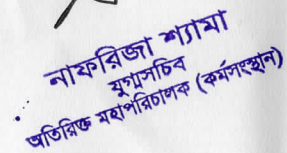 নাফরিজা শ্যামা
যুগ্মসচিব
অতিরিক্ত মহাপরিচালক (কর্মসংস্থান)